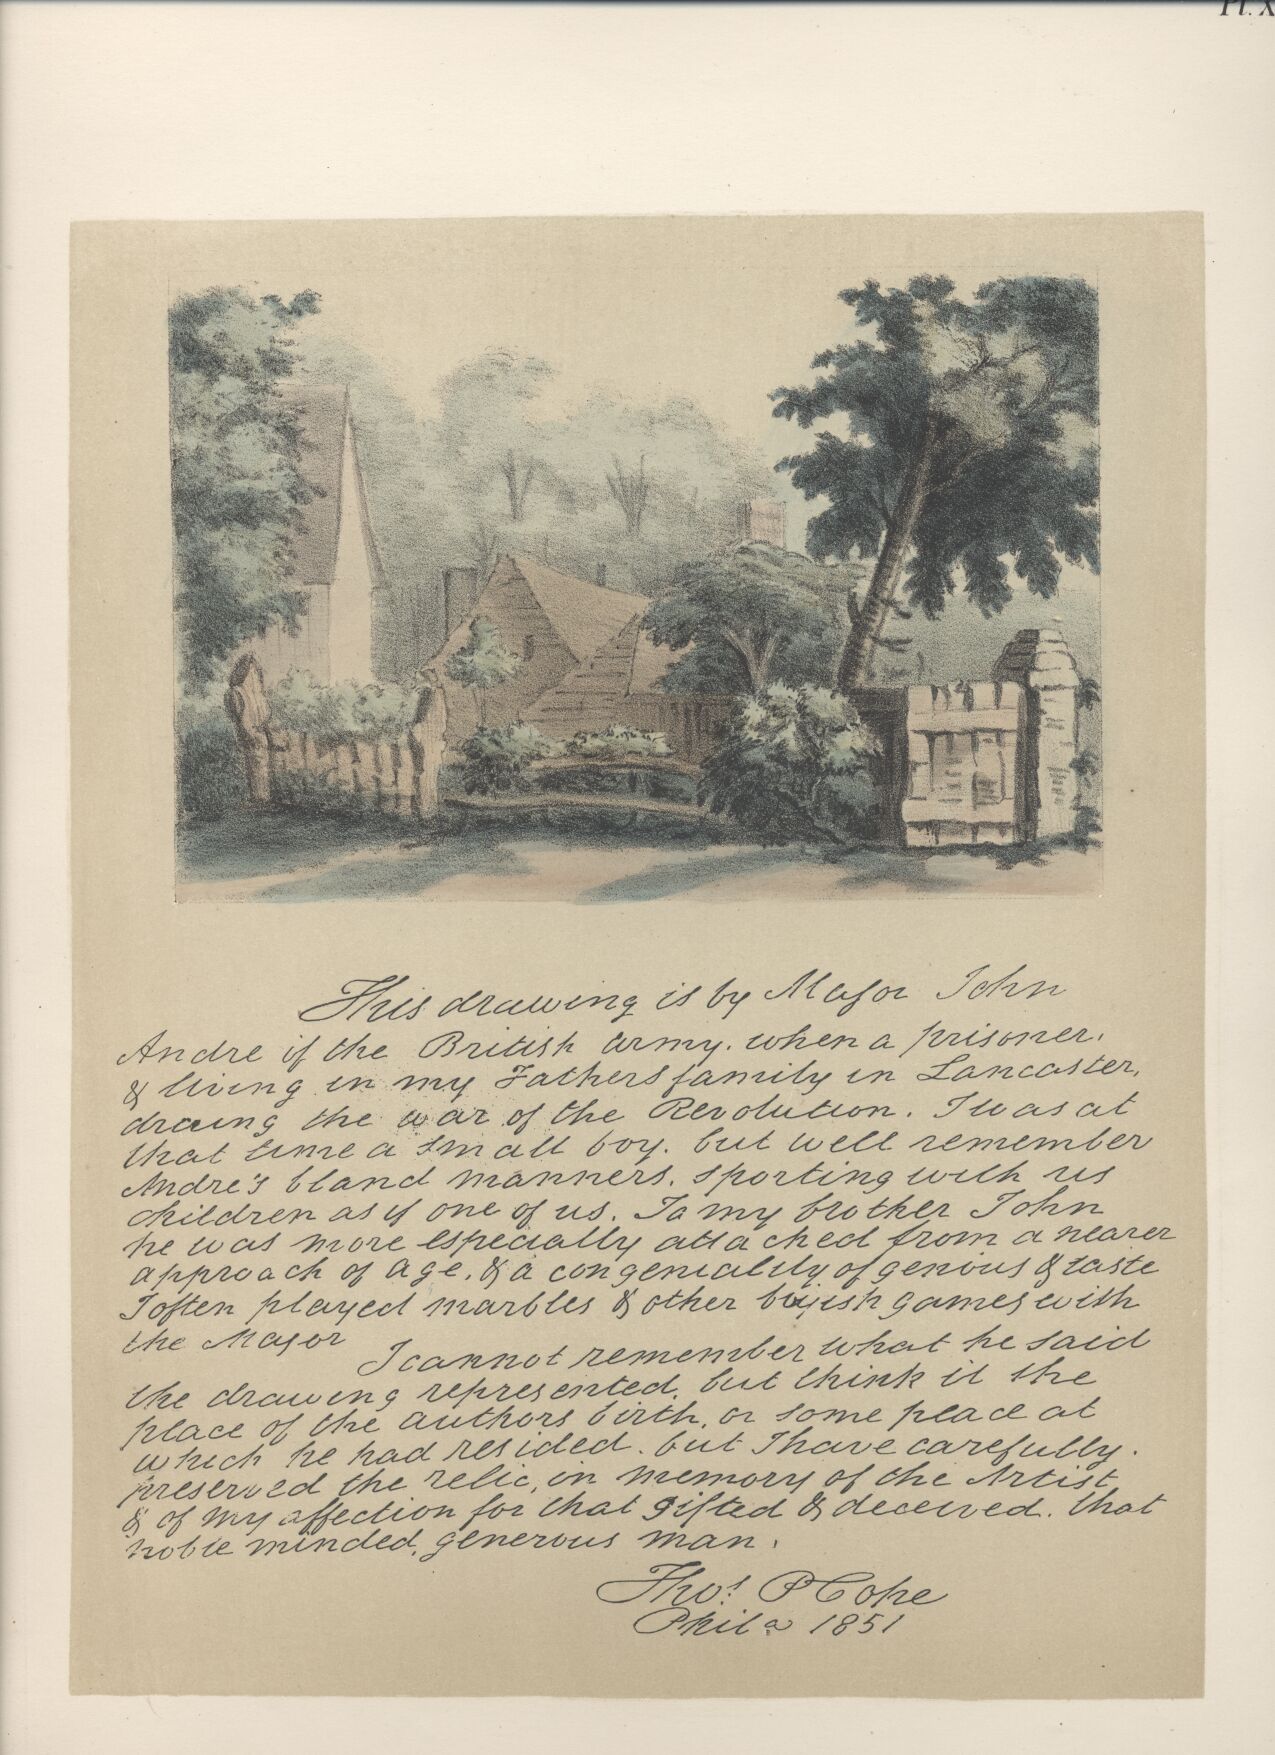 Pl. X
This drawing is by Major John
Andre if the British army. when a prisoner.
& living in my Fathers family in Lancaster,
druing the war of the Revolution. I was at
that time a small boy. but well remember
Andre's bland manners. sporting with us
children as if one of us. To my brother John
he was more especially attached from a nearer
approach of age. & a congeniality of genious & taste
I often played marbles & other boyish games with
the Major
I cannot remember what he said
the drawing represented, but think it the
place of the authors birth, or some place at
which he had resided. but I have carefully.
preserved the relic, in memory of the Artist
& of my affection for that gifted & deceived. that
noble minded, generous man.
Thos. P Cope
Phila 1851